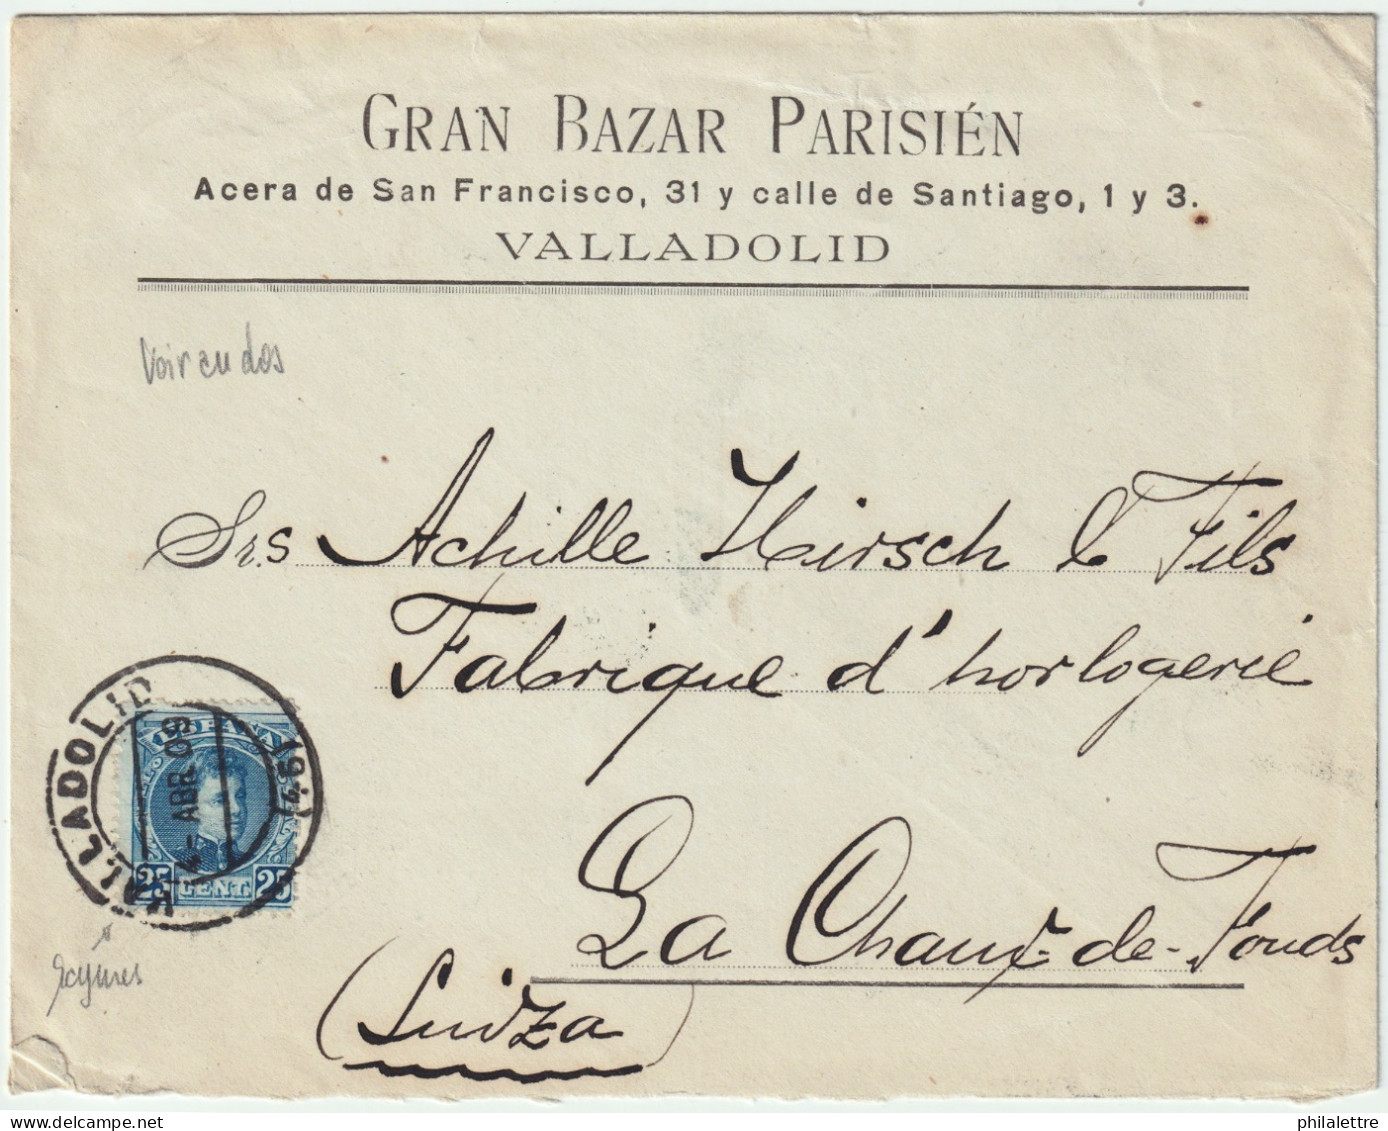 GRAN BAZAR PARISIÉN
Acera de San Francisco, 31 y calle de Santiago, 1 y 3.
VALLADOLID
Voir au dos
Srs Achille Hirsch & Fils
Fabrique d'horlogerie
La Chaux-de-Fonds
(Suiza)
VALLADOLID
ABR. 09
ESPAÑA
25 CENT. 25
philalettre